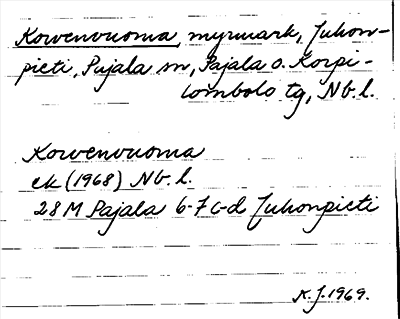 Korvenvuoma, myrmark, Juhon-
pieti, Pajala sn, Pajala o. Korpi-
lombolo tg, Nb.l.
Korvenvuoma
ek (1968) Nb.l.
28 M Pajala 6-7 c-d Juhonpieti
K.J. 1969.